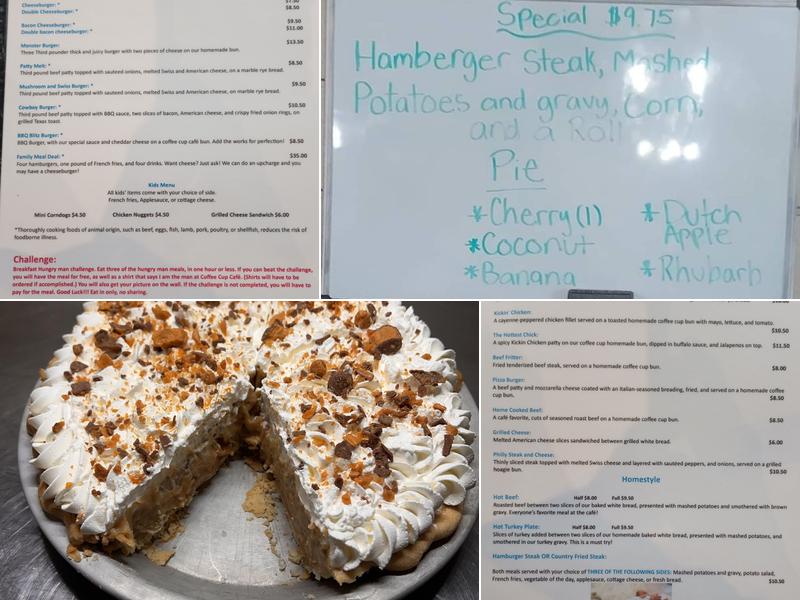 Cheeseburger: *
Double Cheeseburger: * $8.50
Bacon Cheeseburger: * $9.50
Double bacon cheeseburger: * $11.00
Monster Burger: $13.50
Three Third pounder thick and juicy burger with two pieces of cheese on our homemade bun.
Patty Melt: * $8.50
Third pound beef patty topped with sauteed onions, melted Swiss and American cheese, on a marble rye bread.
Mushroom and Swiss Burger: * $9.50
Third pound beef patty topped with sauteed onions, melted Swiss and American cheese, on marble rye bread.
Cowboy Burger: * $10.50
Third pound beef patty topped with BBQ sauce, two slices of bacon, American cheese, and crispy fried onion rings, on
grilled Texas toast.
BBQ Blitz Burger: *
BBQ Burger, with our special sauce and cheddar cheese on a coffee cup café bun. Add the works for perfection! $8.50
Family Meal Deal: * $35.00
Four hamburgers, one pound of French fries, and four drinks. Want cheese? Just ask! We can do an upcharge and you
may have a cheeseburger!
Kids Menu
All kids' items come with your choice of side.
French fries, Applesauce, or cottage cheese.
Mini Corndogs $4.50 Chicken Nuggets $4.50 Grilled Cheese Sandwich $6.00
*Thoroughly cooking foods of animal origin, such as beef, eggs, fish, lamb, pork, poultry, or shellfish, reduces the risk of
foodborne illness.
Challenge:
Breakfast Hungry man challenge. Eat three of the hungry man meals, in one hour or less. If you can beat the challenge,
you will have the meal for free, as well as a shirt that says I am the man at Coffee Cup Café. (Shirts will have to be
ordered if accomplished.) You will also get your picture on the wall. If the challenge is not completed, you will have to
pay for the meal. Good Luck!!! Eat in only, no sharing.
Special $9.75
Hamberger Steak, Mashed
Potatoes and gravy, Corn,
and a Roll
Pie
*Cherry (1)
*Coconut
*Banana
*Dutch
Apple
*Rhubarb
Kickin' Chicken:
A cayenne-peppered chicken fillet served on a toasted homemade coffee cup bun with mayo, lettuce, and tomato.
$10.50
The Hottest Chick:
A spicy Kickin Chicken patty on our coffee cup homemade bun, dipped in buffalo sauce, and Jalapenos on top. $11.50
Beef Fritter:
Fried tenderized beef steak, served on a homemade coffee cup bun. $8.00
Pizza Burger:
A beef patty and mozzarella cheese coated with an Italian-seasoned breading, fried, and served on a homemade coffee
cup bun. $8.50
Home Cooked Beef:
A café favorite, cuts of seasoned roast beef on a homemade coffee cup bun. $8.50
Grilled Cheese:
Melted American cheese slices sandwiched between grilled white bread. $6.00
Philly Steak and Cheese:
Thinly sliced steak topped with melted Swiss cheese and layered with sautéed peppers, and onions, served on a grilled
hoagie bun. $10.50
Homestyle
Hot Beef: Half $8.00 Full $9.50
Roasted beef between two slices of our baked white bread, presented with mashed potatoes and smothered with brown
gravy. Everyone's favorite meal at the café!
Hot Turkey Plate: Half $8.00 Full $9.50
Slices of turkey added between two slices of our homemade baked white bread, presented with mashed potatoes, and
smothered in our turkey gravy. This is a must try!
Hamburger Steak OR Country Fried Steak:
Both meals served with your choice of THREE OF THE FOLLOWING SIDES: Mashed potatoes and gravy, potato salad,
French fries, vegetable of the day, applesauce, cottage cheese, or fresh bread. $10.50